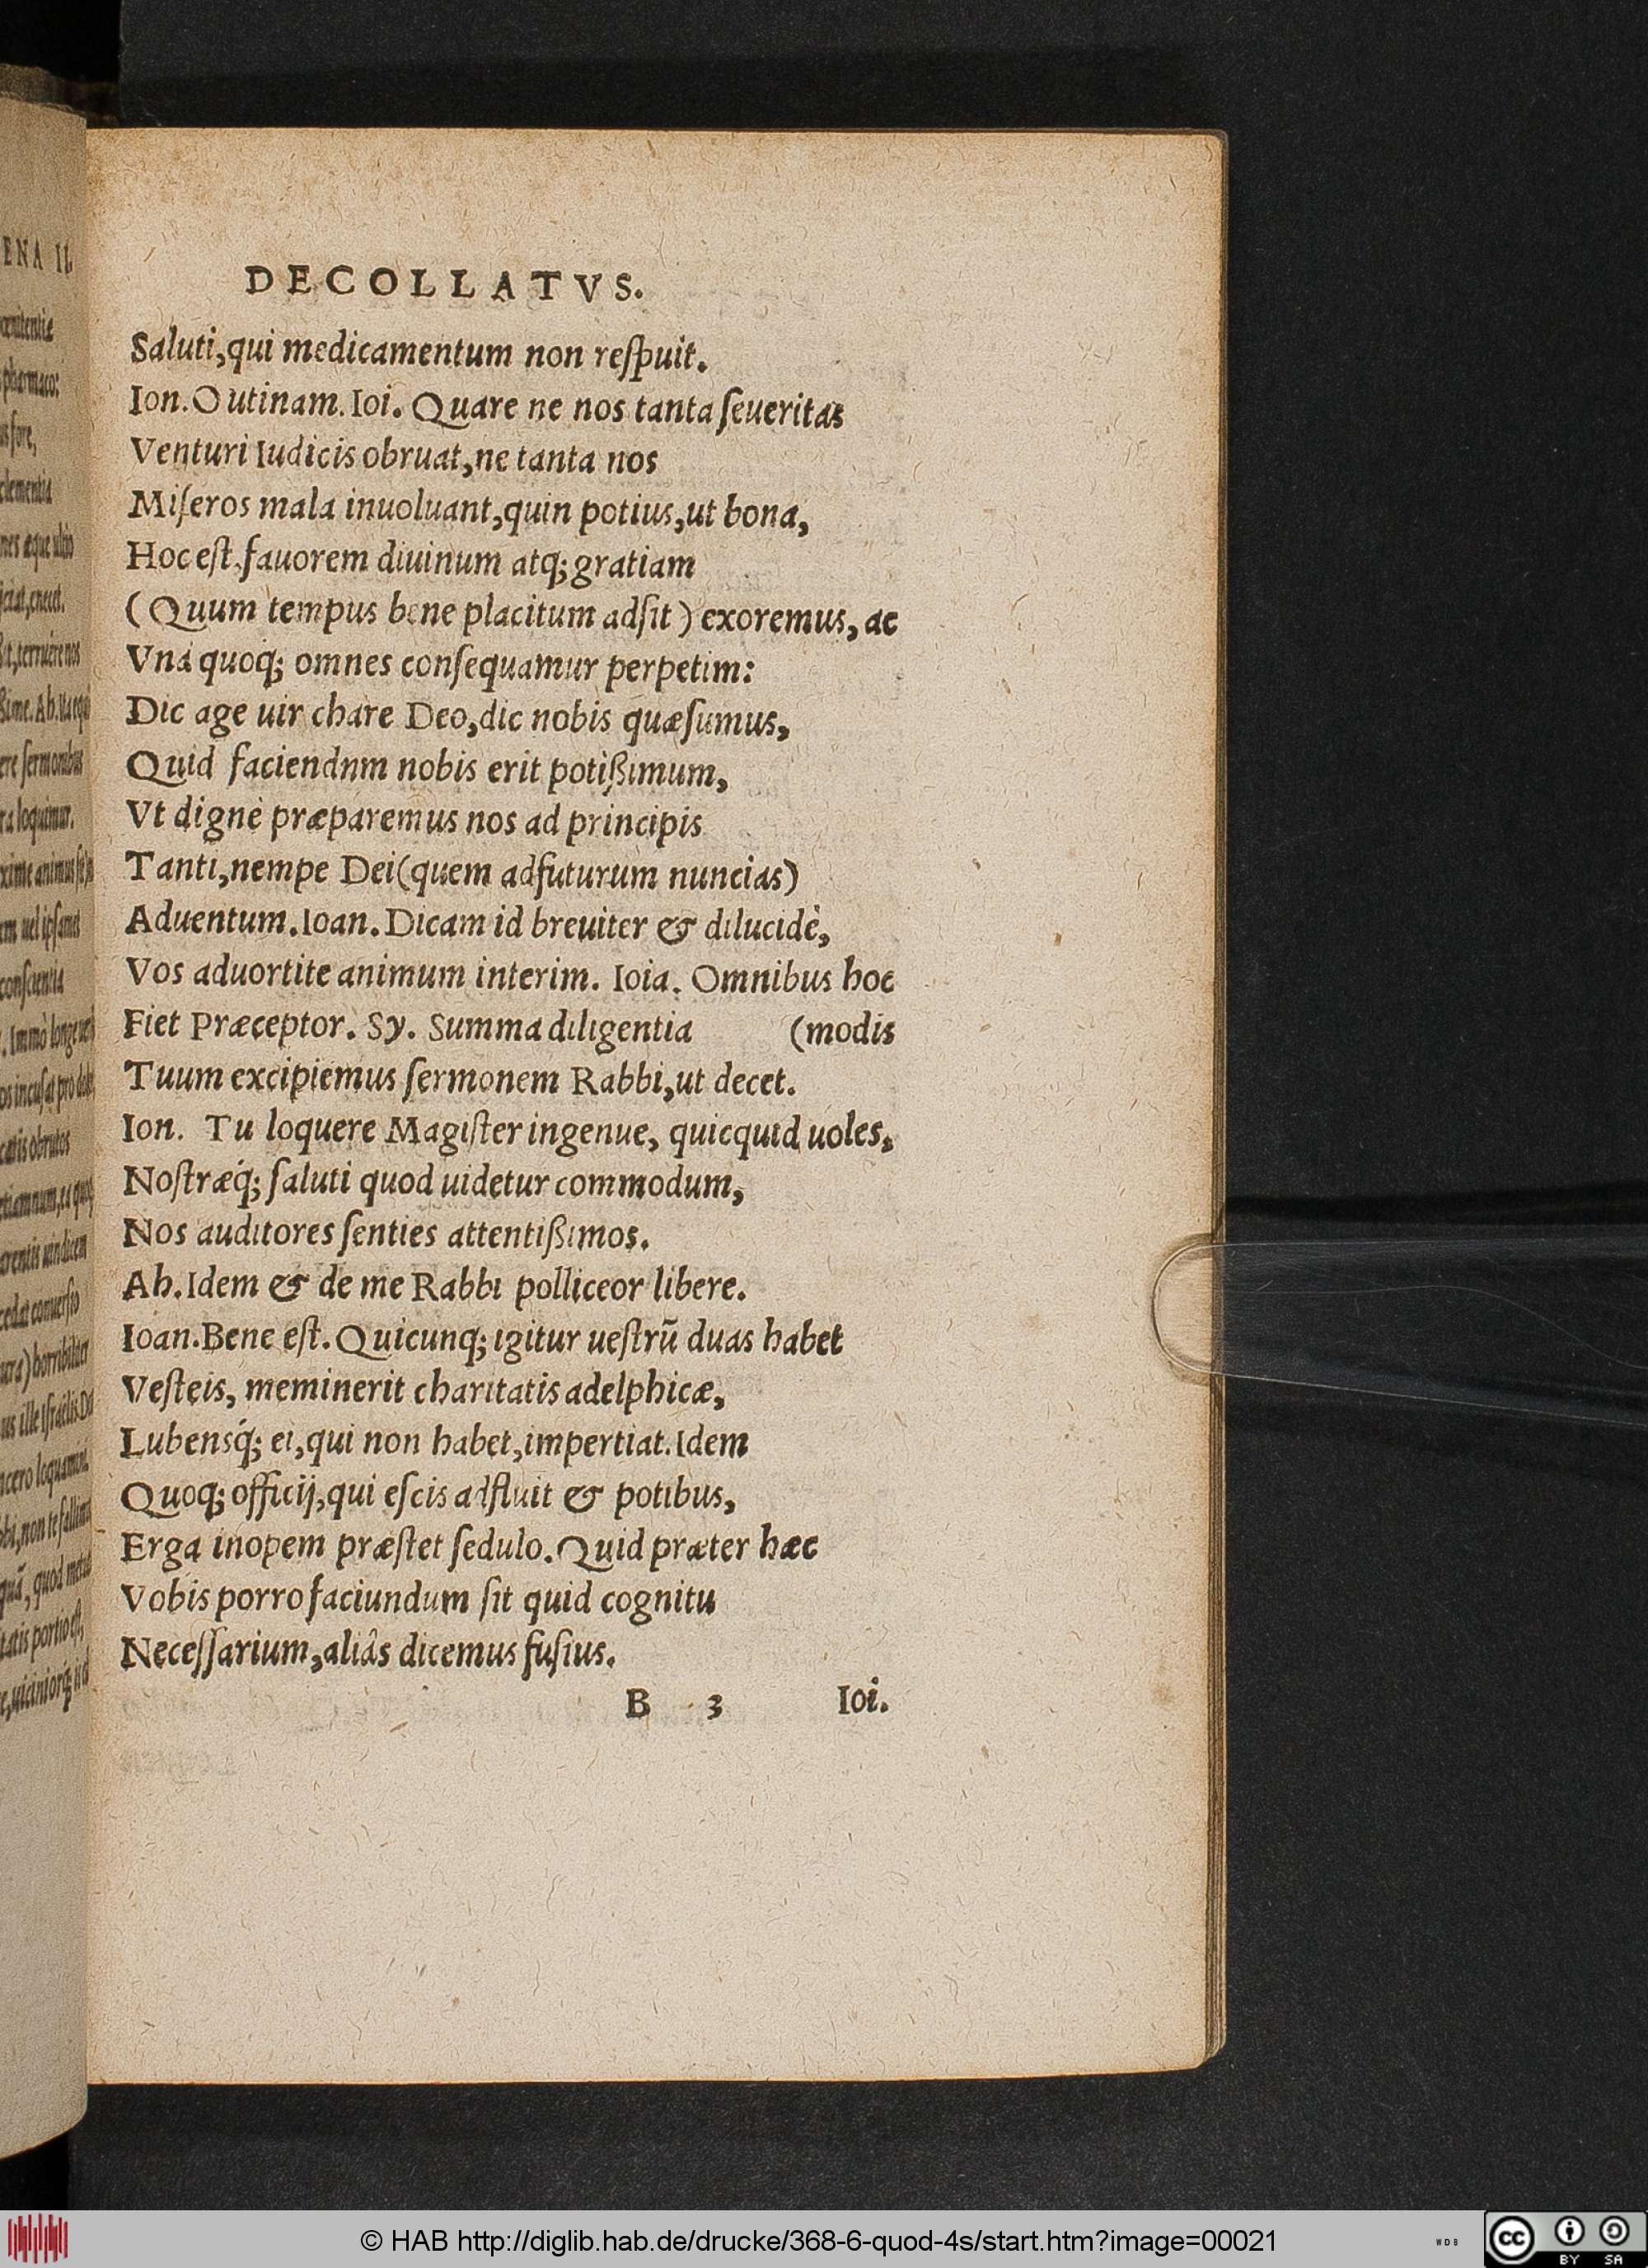 DECOLLATVS.
Saluti,qui medicamentum non reſpuit.
Ion.O utinam.Ioi. Quare ne nos tanta ſeueritas
Venturi Iudicis obruat,ne tanta nos
Miſeros mala inuoluant,quin potius,ut bona,
Hoc eſt,fauorem diuinum atq; gratiam
(Quum tempus bene placitum adſit) exoremus, ac
Vná quoq; omnes conſequamur perpetim:
Dic age uir chare Deo,dic nobis quæſumus,
Quid faciendnm nobis erit potißimum,
Vt dignè præparemus nos ad principis
Tanti,nempe Dei(quem adfuturum nuncias)
Aduentum.Ioan.Dicam id breuiter & dilucidè,
Vos aduortite animum interim. Ioia. Omnibus hoc
Fiet Præceptor. Sy. Summa diligentia (modis
Tuum excipiemus ſermonem Rabbi,ut decet.
Ion. Tu loquere Magiſter ingenue, quicquid uoles,
Noſtræq́; ſaluti quod uidetur commodum,
Nos auditores ſenties attentißimos.
Ab.Idem & de me Rabbi polliceor libere.
Ioan.Bene eſt.Quicunq; igitur ueſtrū duas habet
Veſteis, meminerit charitatis adelphicæ,
Lubensq́; ei,qui non habet,impertiat.Idem
Quoq; officij,qui eſcis adfluit & potibus,
Erga inopem præſtet ſedulo.Quid præter hæc
Vobis porro faciundum ſit quid cognitu
Neceſſarium,aliâs dicemus fuſius.
B 3 Ioi.
© HAB http://diglib.hab.de/drucke/368-6-quod-4s/start.htm?image=00021
WDB
cc BY SA